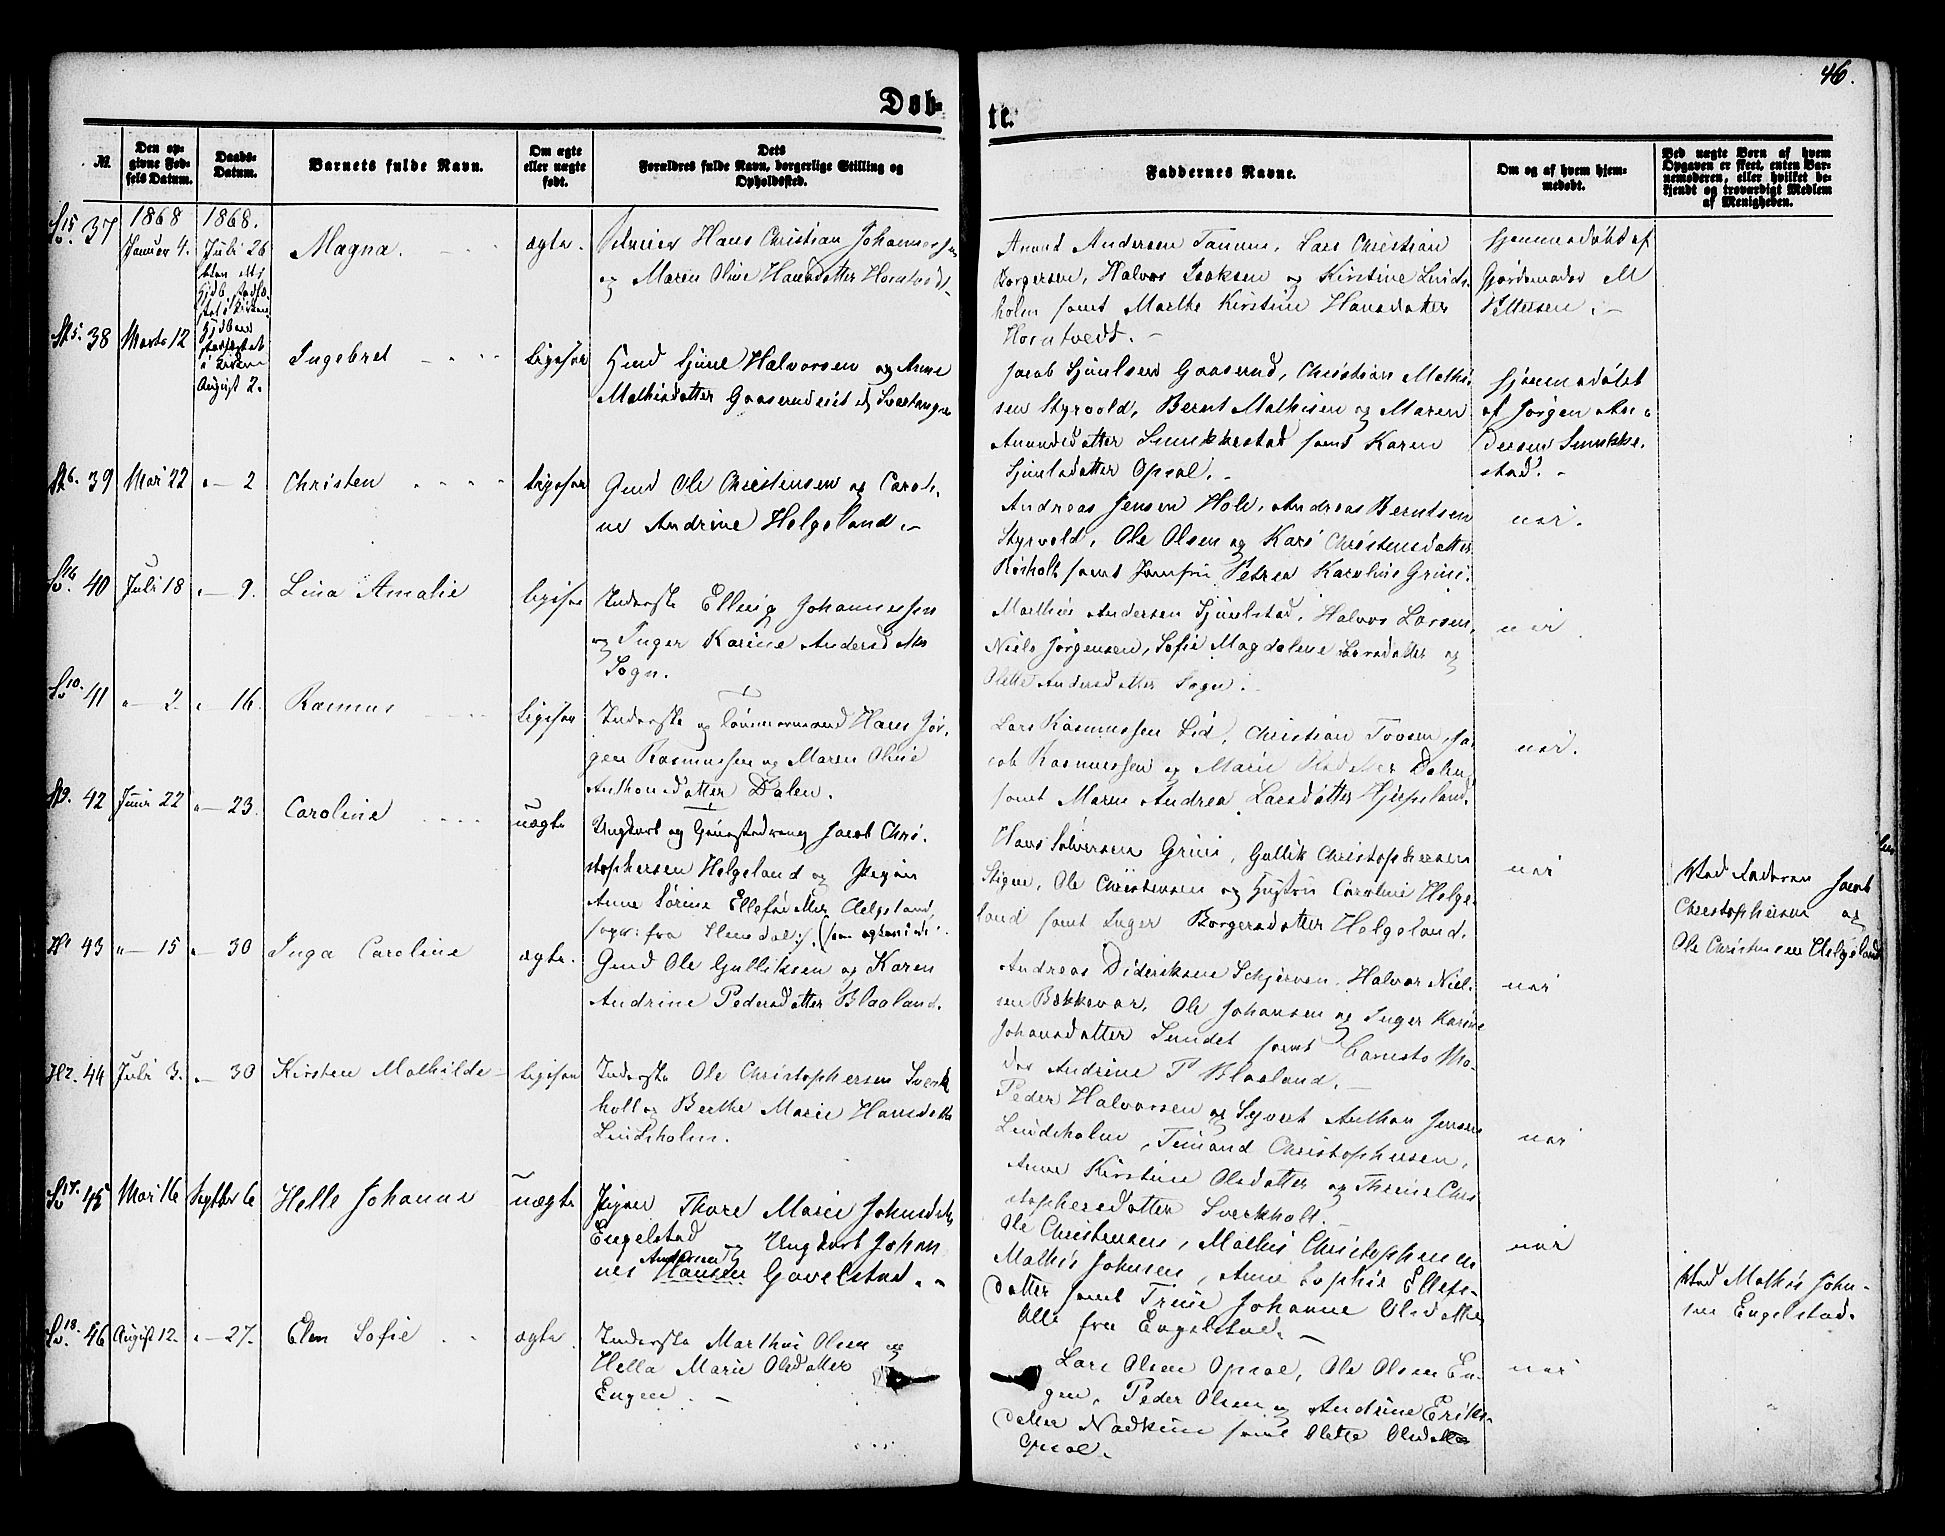 46.
Døb-
te.
№.
Den op-
givne Fød-
sels Datum.
Daabs-
Datum.
Barnets fulde Navn.
Om ægte
eller uægte
født.
Dets
Forældres fulde Navn, borgerlige Stilling og
Opholdssted.
Faddernes Navne.
Om og af hvem hjem-
medøbt.
Ved uægte Børn af hvem
Opgaven er skeet, enten Bar-
nemoderen, eller hvilket be-
kjendt og troværdigt Medlem
af Menigheden.
1868
1868.
37
Januar 4.
Juli 26
Magna.
ægte.
Hans Christian Johannessen
og Maren Oline Hansdatter Horntvedt
Anund Andersen Tanum, Lars Christian
Borgersen, Halvor Isaksen og Kirstine Linds-
holm samt Marthe Kirstine Hansdatter
Horntvedt.
Hjemmedøbt af
Gjordemoder M
Pettersen.
38
Marts 12
i Kirken
August 2.
Ingebret
Ligesaa
Gmd Sjuel Halvorsen og Anne
Mathisdatter Gaaserudeiet
Jacob Sjuelsen Gaaserud, Christian Mathi-
sen Styrvold, Bernt Mathisen og Maren
Anundsdatter Smukkestad samt Karen
Sjuelsdatter Opsal.
Hjemmedøbt
af Jørgen An-
dersen Smukke-
stad.
39
Mai 22
" — 2
Christen
Ligesaa
Gmd Ole Christensen og Caroli-
ne Andrine Helgeland.
Andreas Jensen Holt, Andreas Berntsen
Styrvold, Ole Olsen og Kari Christensdatter
Røsholt samt Jomfru Petrea Karoline Grini.
nei.
40
Juli 18
" — 9.
Lina Amalie
Ligesaa
Inderste Elling Johannessen
og Inger Karine Andersdatter
Sogn.
Mathias Andersen Sjuelstad, Halvor Larsen,
Niels Jørgensen, Sofie Magdalene Larsdatter og
Olette Andersdatter Sogn.
nei
41
" — 2
" — 16.
Rasmus
Ligesaa
Inderste og Tømmermand Hans Jør-
gen Rasmussen og Maren Oline
Anthonsdatter Dalen.
Lars Rasmussen Lid, Christian Tovsen, Ja-
cob Rasmussen og Marie Olsdatter Dalen
samt Maren Andrea Larsdatter Hjerpeland.
nei.
42
Juni 22
" — 23.
Caroline
uægte
Ungkarl og Jacob Chri-
stophersen Helgeland og Pigen
Anne Sørine Ellefsdatter Helgeland,
fra
Hans Sølversen Grini, Gullik Christophersen
Stigen, Ole Christensen og Hustru Caroline Helge-
land samt Inger Borgersdatter Helgeland.
nei
Ved Faderen Jacob
Christophersen og
Ole Christensen Helgeland
43
" — 15
" — 30
Inga Caroline
ægte.
Gmd Ole Gulliksen og Karen
Andrine Pedersdatter Blaaland.
Andreas Dideriksen Schjerven, Halvor Niel-
sen Bækkevar, Ole Johansen og Inger Karine
Johansdatter Sundet samt Barnets Mo-
der Andrine P Blaaland.
nei
44
Juli 3.
" — 30
Kirsten Mathilde
Ligesaa
Inderste Ole Christophersen Sverk-
holt og Berthe Marie Hansdatter
Lindsholm.
Peder Halvorsen og Syvert Anthon Jensen
Lindsholm, Timand Christophersen,
Anne Kirstine Olsdatter og Therine Chri-
stophersdatter Sverkholt.
nei
45
Mai 16
Septber 6
Helle Johanne
uægte
Pigen Thore Marie Johnsdatter
Engelstad og Ungkarl Johan-
nes Hansen Gavelstad.
Ole Christensen, Mathis Christophersen
Mathis Johnsen, Anne Sophie Ellefs-
datter samt Trine Johanne Olsdatter
Alle fra Engelstad.
nei
Ved Mathis John-
sen Engelstad.
46
August 12.
" — 27.
Elen Sofie
ægte.
Inderste Marthin Olsen og
Hella Marie Olsdatter
Engen.
Lars Olsen Opsal, Ole Olsen En-
gen, Peder Olsen og Andrine Eriks-
datter samt Olette Olsdatter
Opsal.
nei